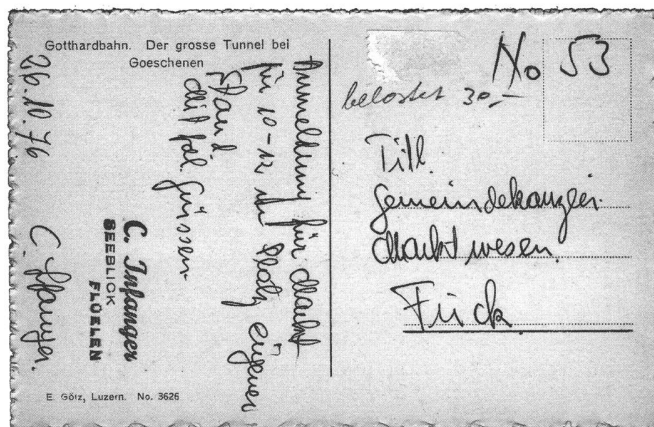 Gotthardbahn. Der grosse Tunnel bei
Goeschenen
26.10.76
Anmeldung für Markt
für 10-12 m Platz eigener
Stand.
Mit frdl. Grüssen
C. Infanger
SEEBLICK
FLÜELEN
C. Infanger.
E. Götz, Luzern. No. 3626
No 53
belastet 30,-
Titl.
Gemeindekanzlei
Marktwesen.
Frick